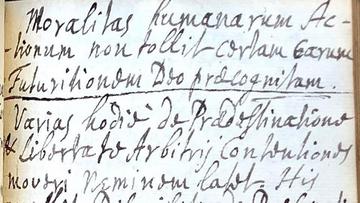 Moralitas humanarum Ac-
-tionum non tollit certam Earum
Futuritionem Deo præcognitam.
Varias hodiè de Prædestinatione
& Libertate Arbitrij Contentiones
moveri Neminem latet. His